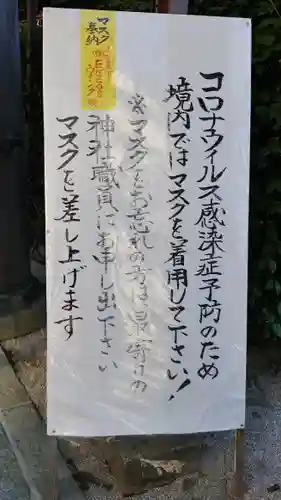 コロナウィルス感染症予防のため
境内ではマスクを着用して下さい!
※マスクをお忘れの方は最寄りの
神社職員にお申し出下さい
マスクを差し上げます
マスク
奉納